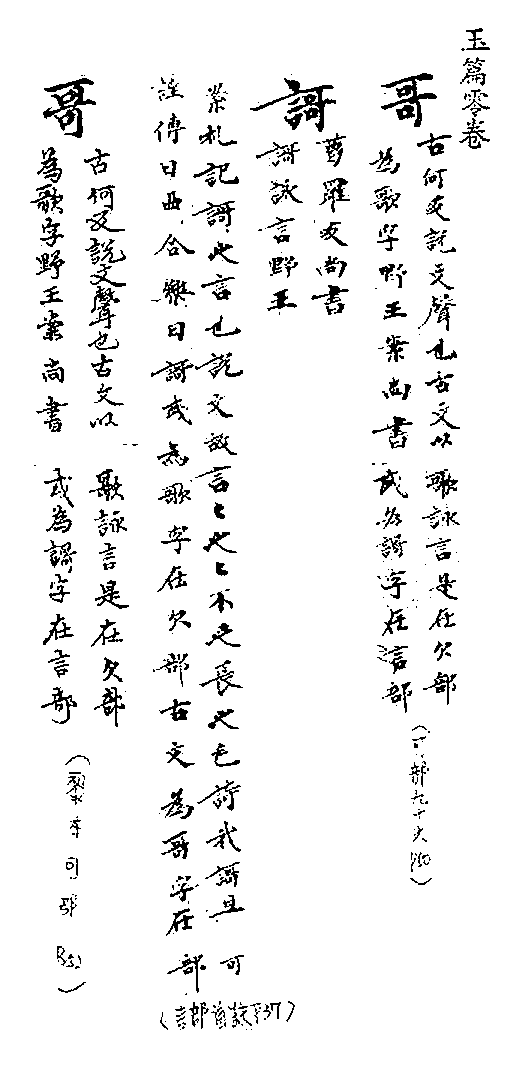 玉篇零卷
哥
古何反說文聲也古文以 歌詠言是在欠部
為歌字野王案尚書 或為謌字在言部
(可部九十
謌
葛羅反尚書
謌詠言野王
案札記謌之言也說文故言之也之不足長之也毛詩我謌且 可
註傳曰曲合樂曰謌或為歌字在欠部古文為哥字在 部
(言部
哥
古何反說文聲也古文以 歌詠言是在欠部
為歌字野王案尚書 或為謌字在言部
(黎本可部